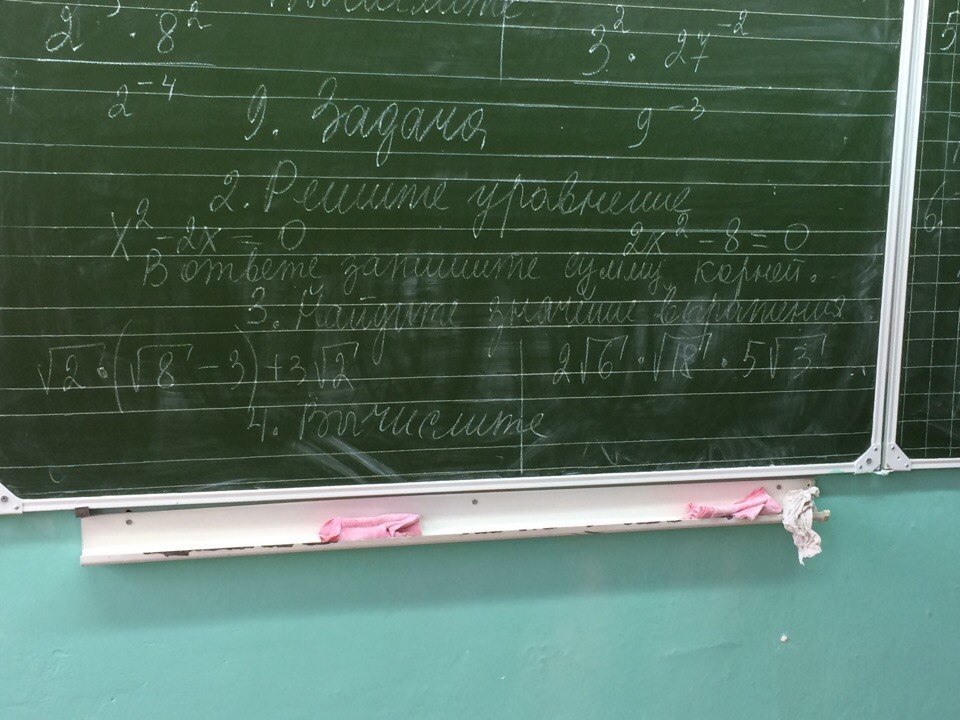 2 · 8² 3² · 27⁻²
2⁻⁴ 9⁻³
9. Задача
2. Решите уравнение
x² - 2x = 0 2x² - 8 = 0
В ответе запишите сумму корней.
3. Найдите значение выражения
√2 · (√8 - 3) + 3√2 2√6 · √8 · 5√3
4. Вычислите
5
6.